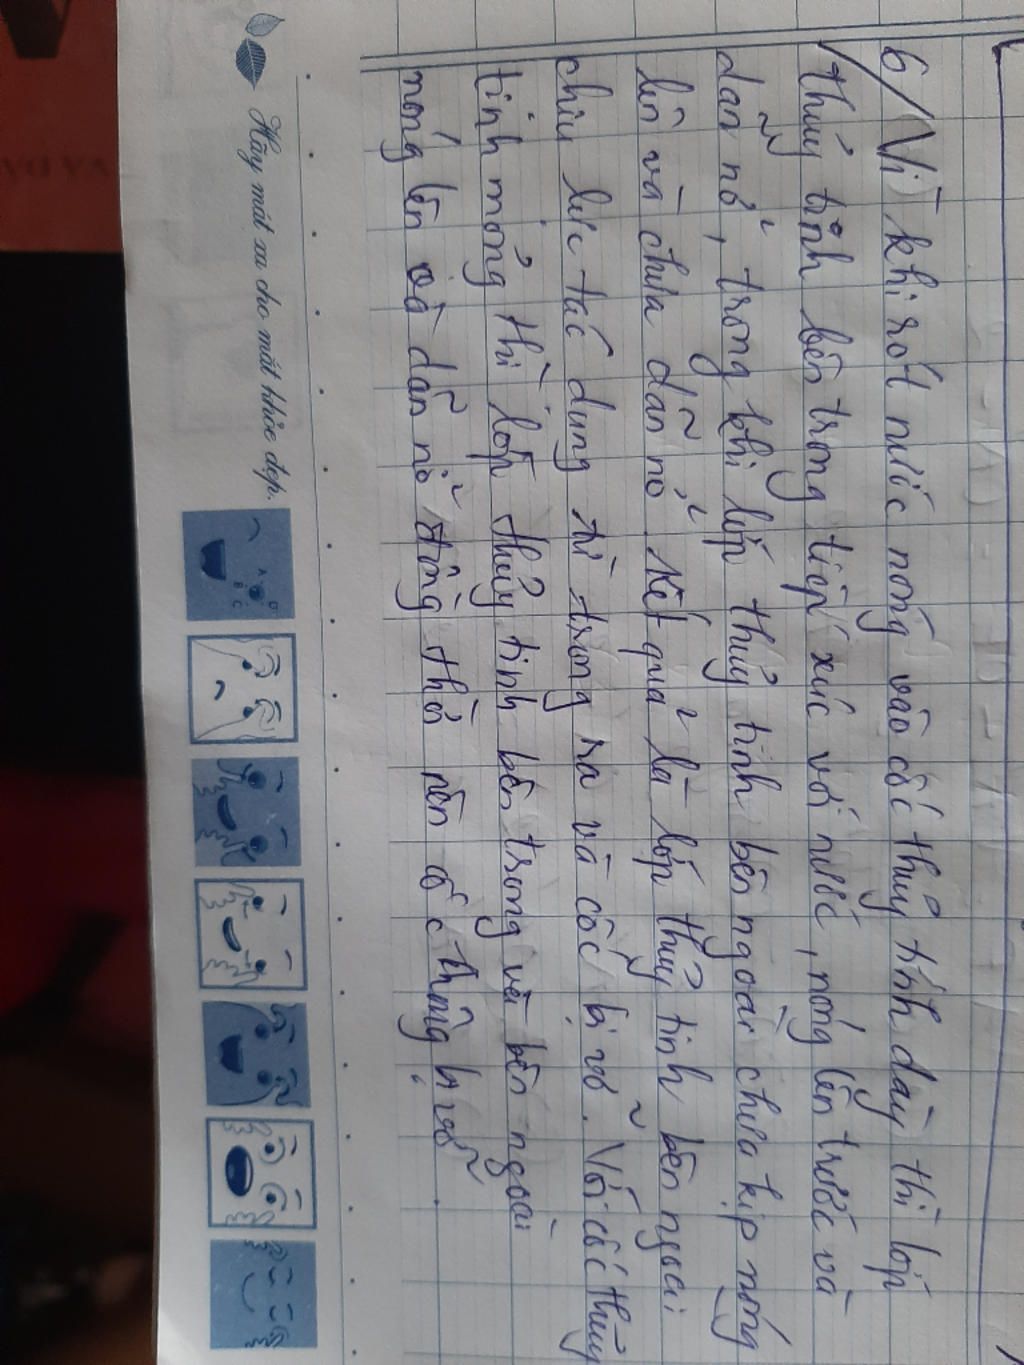 6/ Vì khi rót nước nóng vào cốc thủy tinh dày thì lớp
thủy tinh bên trong tiếp xúc với nước, nóng lên trước và
dãn nở, trong khi lớp thủy tinh bên ngoài chưa kịp nóng
lên và chưa dãn nở. Kết quả là lớp thủy tinh bên ngoài
chịu lực tác dụng từ trong ra và cốc bị vỡ. Với cốc thủy
tinh mỏng thì lớp thủy tinh bên trong và bên ngoài
nóng lên và dãn nở đồng thời nên cốc không bị vỡ.
Hãy mát xa cho mắt khỏe đẹp.